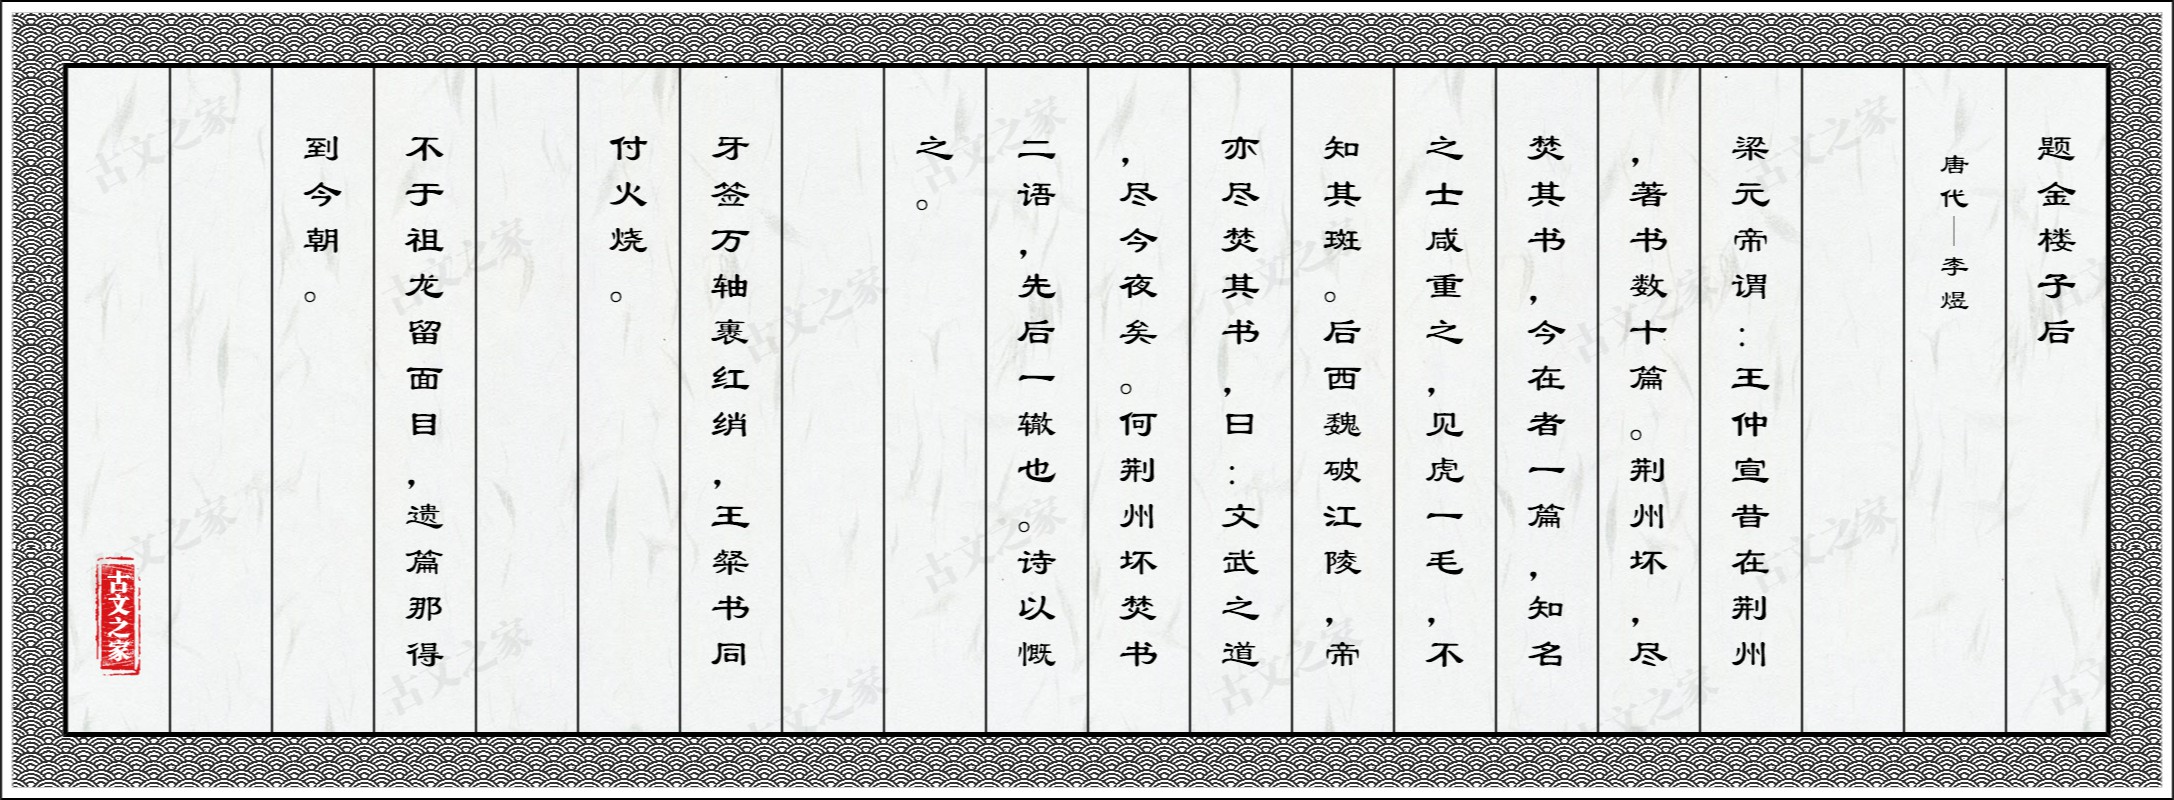 题金楼子后
唐代｜李煜
梁元帝谓：王仲宣昔在荆州
，著书数十篇。荆州坏，尽
焚其书，今在者一篇，知名
之士咸重之，见虎一毛，不
知其斑。后西魏破江陵，帝
亦尽焚其书，曰：文武之道
，尽今夜矣。何荆州坏焚书
二语，先后一辙也。诗以慨
之。
牙签万轴裹红绡，王粲书同
付火烧。
不于祖龙留面目，遗篇那得
到今朝。
古文之家